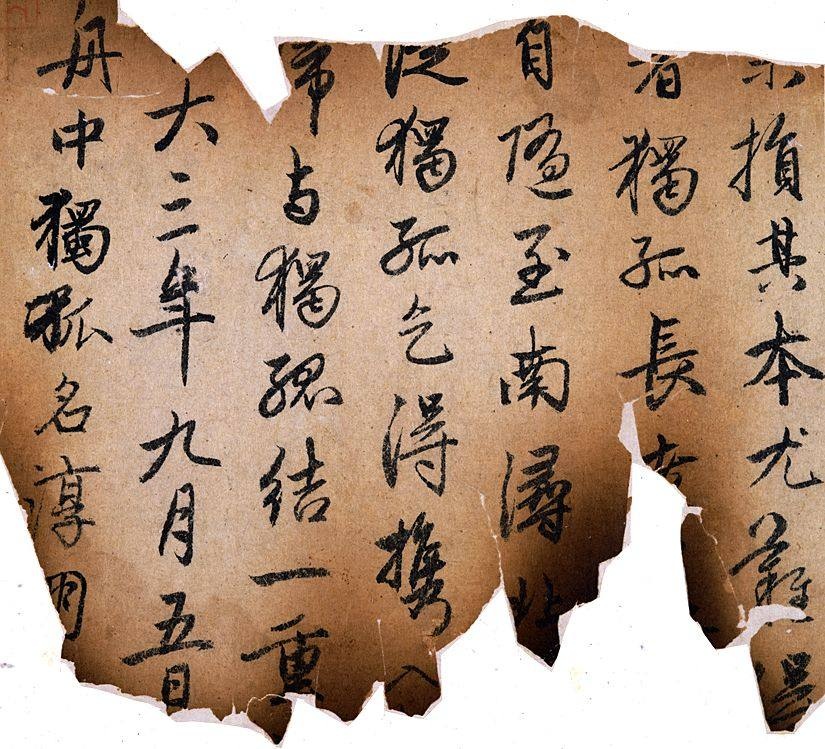 未損其本尤難得
者獨孤長
自隨至南潯北
從獨孤乞得攜入
歸与獨孤結一重
大三年九月五日
舟中獨孤名淳朋